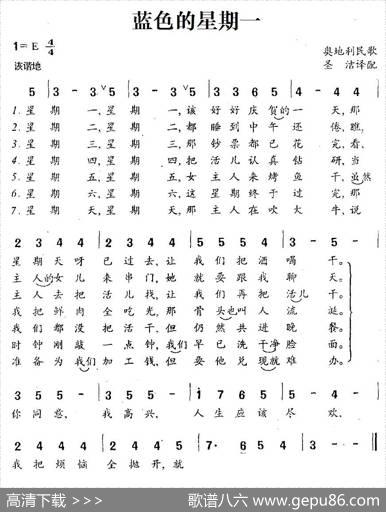 蓝色的星期一
1=E 4/4
奥地利民歌
诙谐地
圣 洁译配
5 | 3 - 3 5 | 3 - 3 5 | 3 6 5 4 | 3 - 4 4 |
1. 星 期 一, 星 期 一, 该 好 好 庆 贺的 一 天, 那
2. 星 期 二, 星 期 二, 都 睡 到 中 午 还 倦, 瞧,
3. 星 期 三, 星 期 三, 那 钞 票 都 已 花 完, 看,
4. 星 期 四, 星 期 四, 把 活 儿 认 真 钻 研, 当
5. 星 期 五, 星 期 五, 女 主 人 来 烤 鱼 干, 虽然
6. 星 期 六, 星 期 六, 这 星 期 终 于 过 完, 那
7. 星 期 天, 星 期 天, 那 主 人 在 吹 大 牛, 说
2 3 4 4 | 2 3 4 4 | 5 5 5 4 | 3 - 5 |
星 期 天 呀 已 过 去, 让 我 们 把 酒 喝 干。
主 人的 女 儿 来 串 门, 她 就 要 跟 我 聊 天。
主 人 去 把 活 儿 找, 让 我 们 再 把 活儿 干。
我 把 鲜 肉 全 吃 光, 那 骨 头也 叫 人 流 涎。
我 们 都 没 把 活 干, 但 仍 然 共 进 晚 餐。
时 钟 刚 敲 一 点 钟, 我们 早 已 洗 干净 脸 面。
准 备 为 我们 加 工 钱, 但 要 他 兑 现就 难 办。
3 5 5 5 | 3 5 5 5 | 1 7 6 5 | 5 - 4 - |
你 问 愁, 我 高 兴, 人 生 应 该 尽 欢,
2 4 4 4 | 2 4 4 5 | 7· 6 5 4 | 3 - -
我 把 烦 恼 全 抛 开, 就
高清下载 >>>
歌谱八六 www.gepu86.com